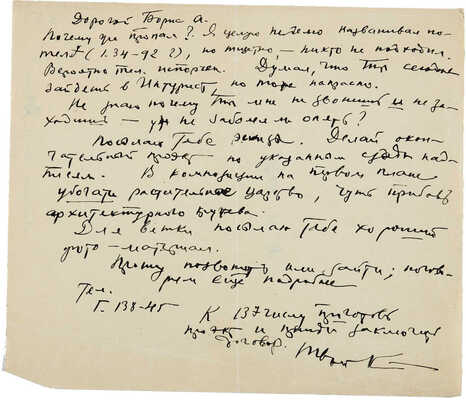 Дорогой Борис А.
Почему ты пропал? Я целую неделю названивал по
тел. (1.34-92 ?), но тщетно, никто не подходил.
Вероятно тел. испорчен. Думал, что ты сегодня
зайдешь в Интурист, но тоже напрасно.
Не знаю почему ты мне не звонишь и не за-
ходишь – уж не заболел ли опять?
Посылаю тебе эскиз. Делай окон-
чательный проект по указанным сюда над-
писям. В композиции на первом плане
убогати растительное царство, чуть прибавь
архитектурного кружева.
Для ветки посылаю тебе хороший
фото-материал.
Прошу позвонить или зайти; погово-
рим еще подробнее
Тел.
Г. 138-45
К 13му числу приготовь
проект и приходи заключать
договор.